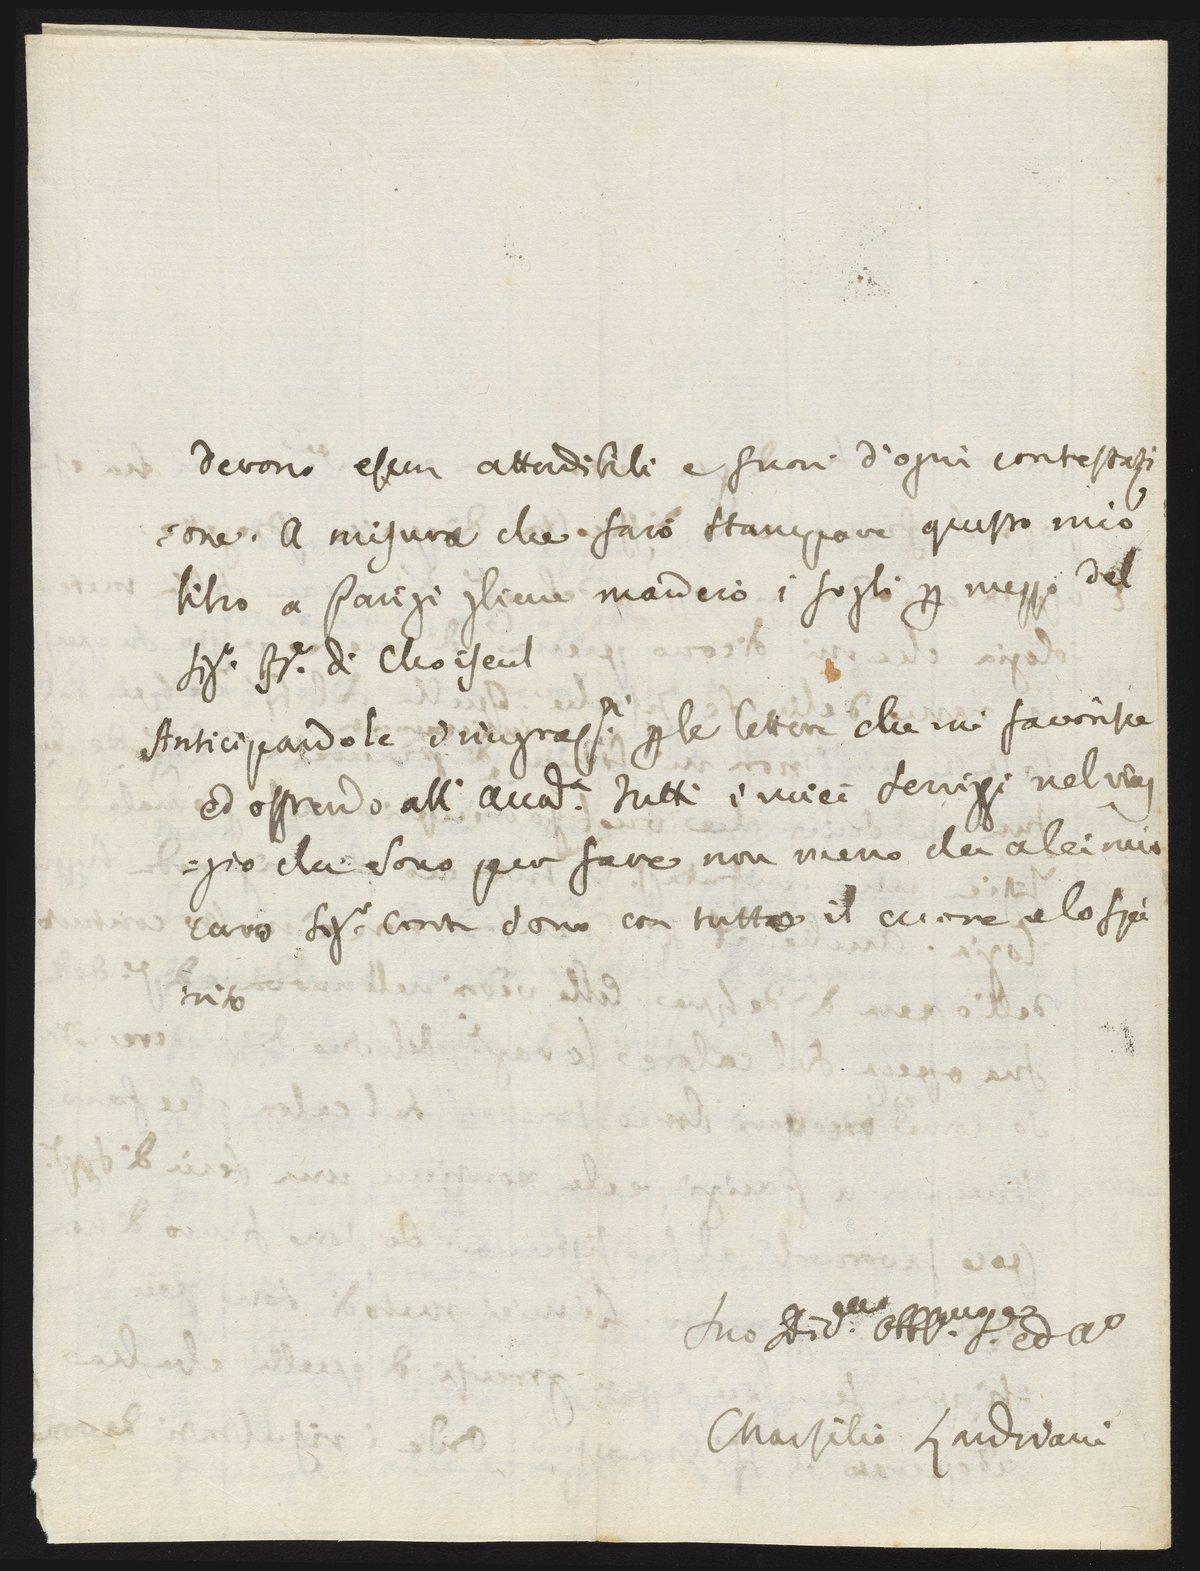 devono essere attendibili e fuori d'ogni contestazi
=one. A misura che farò stampare questo mio
libro a Parigi gliene manderò i fogli p mezzo del
Sigr. Br. di Choiseul
Anticipandole i ringrazti. p le lettere che mi favorisce
ed offrendo all' Accada. tutti i miei servizi nel viag
=gio che sono per fare non meno che a lei mio
caro Sigr. Conte sono con tutto il cuore e lo spi
rito
Suo Obblmo S. ed Ao
Marsilio Landriani